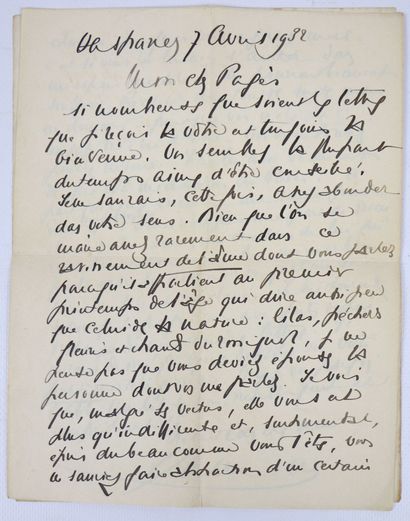 Hasparren 7 Avril 1932
Mon ch Pagès
Si nombreuses que soient les lettres
que je reçois la vôtre est toujours la
bienvenue. Vous semblez la plupart
du temps aimer d'être conseillé.
Je ne saurais, cette fois, abonder
dans votre sens. Bien que l'on se
marie assez rarement dans ce
ravissement de l'âme dont vous parlez
parce qu'il appartient au premier
printemps de l'âge qui dure aussi peu
que celui de la nature : lilas, pêchers
fleuris et chant du rossignol, je ne
pense pas que vous deviez épouser la
personne dont vous me parlez. Je vois
que, malgré ses vertus, elle vous est
plus qu'indifférente et, sentimental,
épris du beau comme vous l'êtes, vous
ne sauriez faire abstraction d'un certain